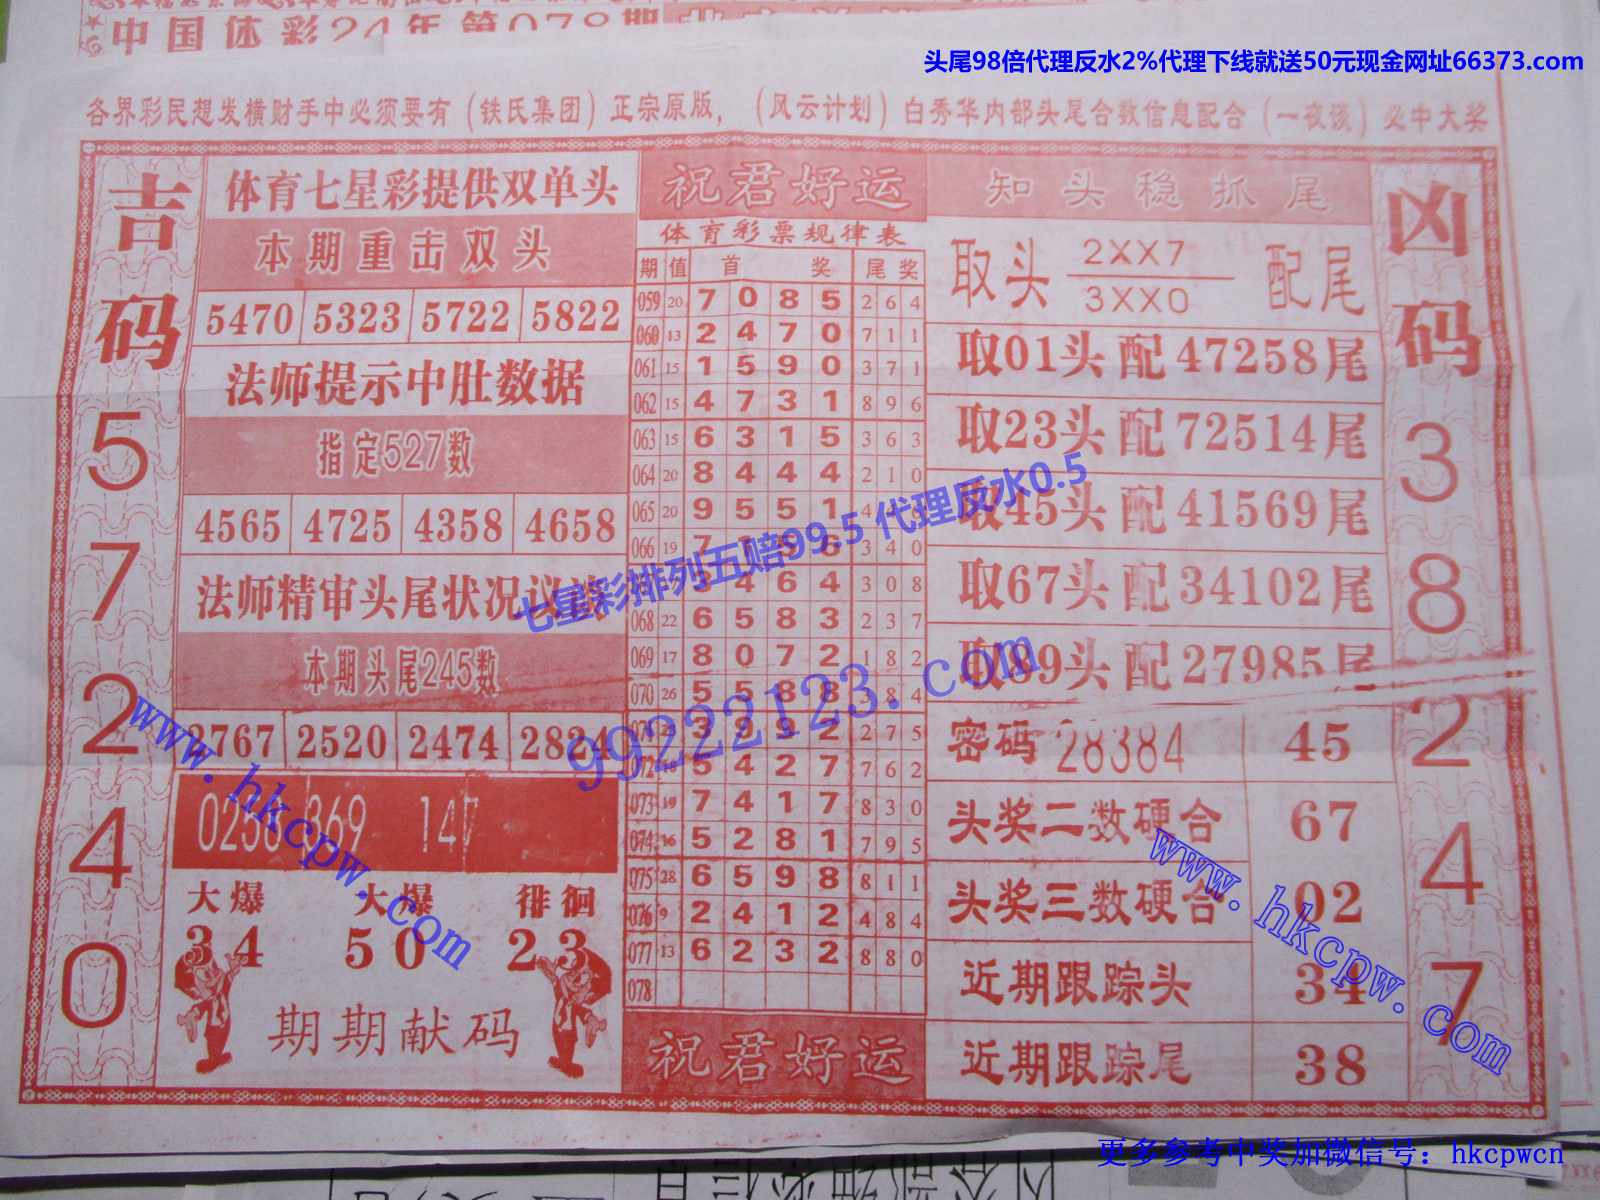 中国体彩24年第078期
头尾98倍代理反水2%代理下线就送50元现金网址66373.com
各界彩民想发横财手中必须要有（铁氏集团）正宗原版，（风云计划）白秀华内部头尾合数信息配合（一夜谈）必中大奖
吉码
5
7
2
4
0
体育七星彩提供双单头
本期重击双头
5470 5323 5722 5822
法师提示中肚数据
指定527数
4565 4725 4358 4658
法师精审头尾状况
本期头尾245数
2767 2520 2474 2824
369 147
大爆 大爆 徘徊
34 50 23
期期献码
祝君好运
体育彩票规律表
期 值 首 奖 尾 奖
059 20 7 0 8 5 2 6 4
060 13 2 4 7 0 7 1 1
061 15 1 5 9 0 3 7 1
062 15 4 7 3 1 8 9 6
063 15 6 3 1 5 3 6 3
064 20 8 4 4 4 2 1 0
065 20 9 5 5 1 4
066 19 7 6 3 4 0
4 6 4 3 0 8
068 22 6 5 8 3 2 3 7
069 17 8 0 7 2 1 8 2
070 26 5 5 8 8 8 4
3 9 9 2 2 7 5
072 5 4 2 7 7 6 2
073 19 7 4 1 7 8 3 0
074 16 5 2 8 1 7 9 5
075 28 6 5 9 8 8 1 1
076 9 2 4 1 2 4 8 4
077 13 6 2 3 2 8 8 0
078
祝君好运
知头稳抓尾
取头 2XX7 配尾
3XX0
取01头配47258尾
取23头配72514尾
取45头配41569尾
取67头配34102尾
取89头配27985尾
密码28384 45
头奖二数硬合 67
头奖三数硬合 02
近期跟踪头 34
近期跟踪尾 38
凶码
3
8
2
4
7
七星彩排列五赔99.5 代理反水0.5
99222123.com
www.hkcpw.com
www.hkcpw.com
更多参考中奖加微信号：hkcpwcn